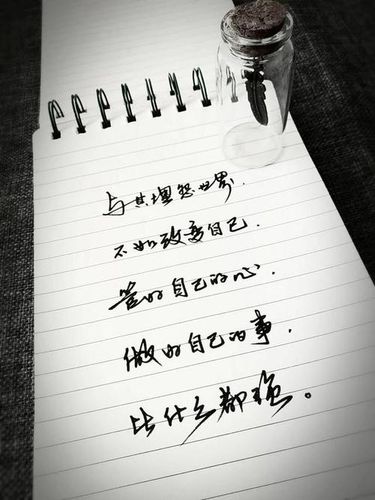 与其埋怨世界，
不如改变自己.
管好自己的心，
做好自己的事，
比什么都强。